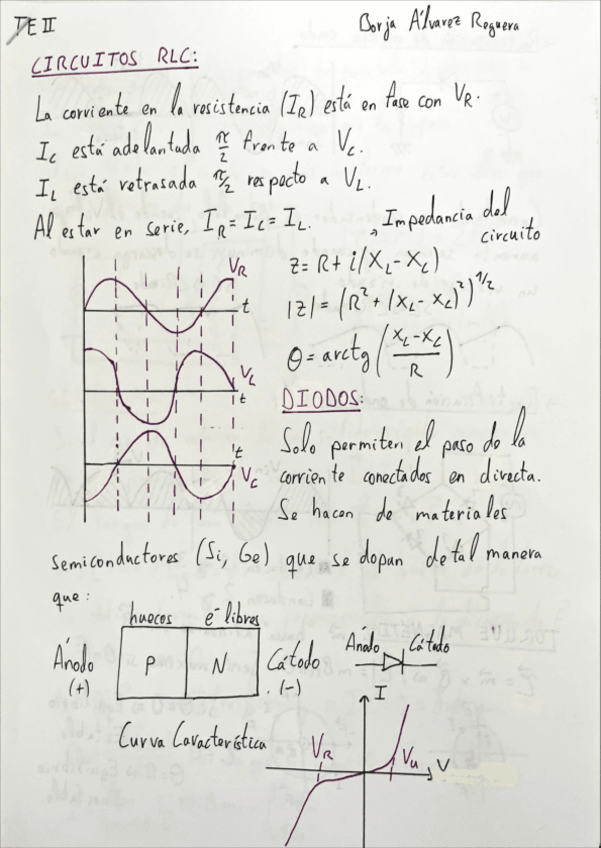 TE II
Borja Álvarez Reguera
CIRCUITOS RLC:
La corriente en la resistencia (I_R) está en fase con V_R.
I_C está adelantada π/2 frente a V_C.
I_L está retrasada π/2 respecto a V_L.
Al estar en serie, I_R = I_C = I_L.
→ Impedancia del
circuito
z = R + i(X_L - X_C)
|z| = (R² + (X_L - X_C)²)^1/2
θ = arctg((X_L - X_C)/R)
V_R
t
V_L
t
t
V_C
DIODOS:
Solo permiten el paso de la
corriente conectados en directa.
Se hacen de materiales
semiconductores (Si, Ge) que se dopan de tal manera
que:
huecos e⁻ libres
Ánodo P N Cátodo
(+) (-)
Ánodo Cátodo
Curva Característica
I
V_R
V_u
V